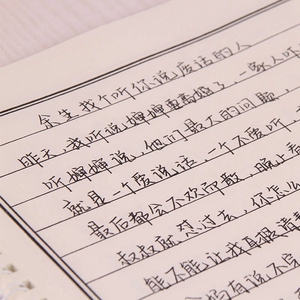 余生找个听你说废话的人
昨天,我听说婶婶要离婚了,一家人吓
听婶婶说,他们最大的问题,
就是一个爱说话,一个不爱听,
最后都会不欢而散,晚上看
叔叔就怼过去,你怎么
能不能让我直接清
有说不完